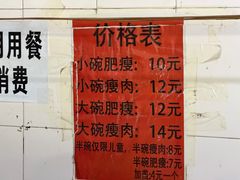 用用餐
消费
价格表
小碗肥瘦: 10元
小碗瘦肉: 12元
大碗肥瘦: 12元
大碗瘦肉: 14元
半碗仅限儿童, 半碗瘦肉:8元
半碗肥瘦:7元
加西:4元一个